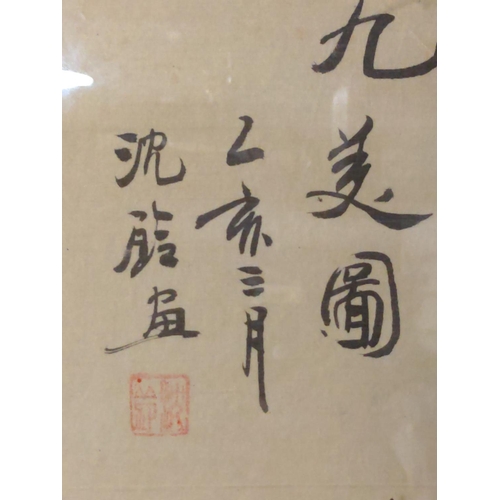 九美圖
乙亥三月
沈膽畫